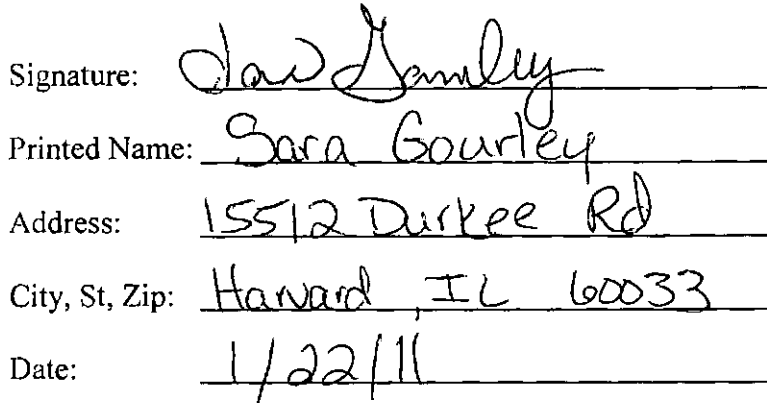 Signature:
Printed Name: Sara Gourley
Address: 15512 Durkee Rd
City, St, Zip: Harvard, IL 60033
Date: 1/22/11